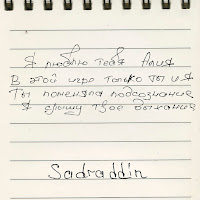 Я люблю тебя Алия
В этой игре только ты и Я
Ты поменяла подсознание
Я слышу твое дыхание
Sadraddin